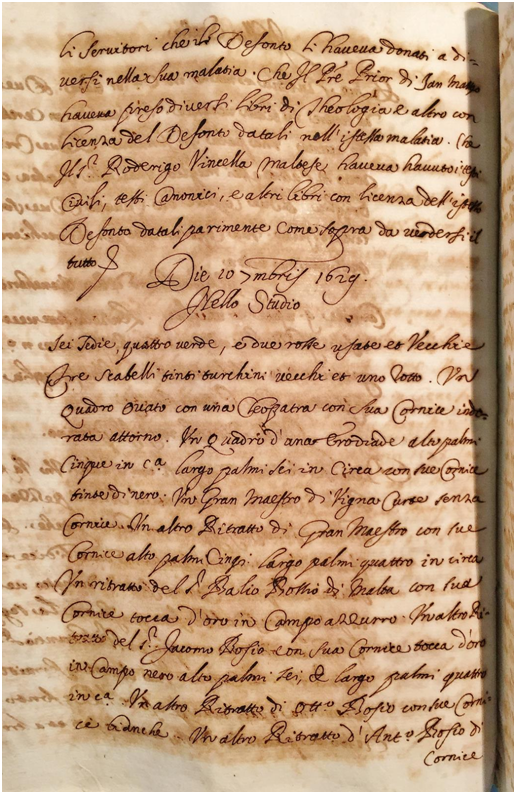 li servitori che il Defonto li haveva donati a di=
versi nella sua malatia. Che Il Pre Prior di San
haveva preso diversi libri di Theologia e altro con
licenza del Defonto datali nell'istessa malatia. Che
Il Sr. Roderigo Vincella maltese haveva havuto
Civili, testi Canonici, e altri libri con licenza dell'istesso
Defonto datali parimente come sopra da vedersi il
tutto
Die 10 7mbris 1629.
Nello Studio
Sei sedie quattro verde, e due rosse usate et vecchie
Tre scabelli tinti turchini vecchi et uno rotto. Un
Quadro ovato con una Cleopatra con sua Cornice indo=
rata attorno. Un Quadro d'una Erodiade alto palmi
Cinque in ca. largo palmi sei in Circa con sue Cornice
tinte di nero. Un Gran Maestro di Vigna Curte senza
Cornice. Un altro Ritratto di Gran Maestro con sue
Cornice alto palmi Cinqe. largo palmi quattro in circa
Un ritratto del Sr. Balio Bosio di Malta con sua
Cornice tocca d'oro in Campo azzurro. Un altro Ri=
tratto del Sr. Jacomo Bosio con sua Cornice tocca d'oro
in Campo nero alto palmi sei, et largo palmi quattro
in ca. Un altro Ritratto di Otto. Bosio con sue Corni=
ce bianche. Un altro Ritratto d'Anto. Bosio di
Cornice